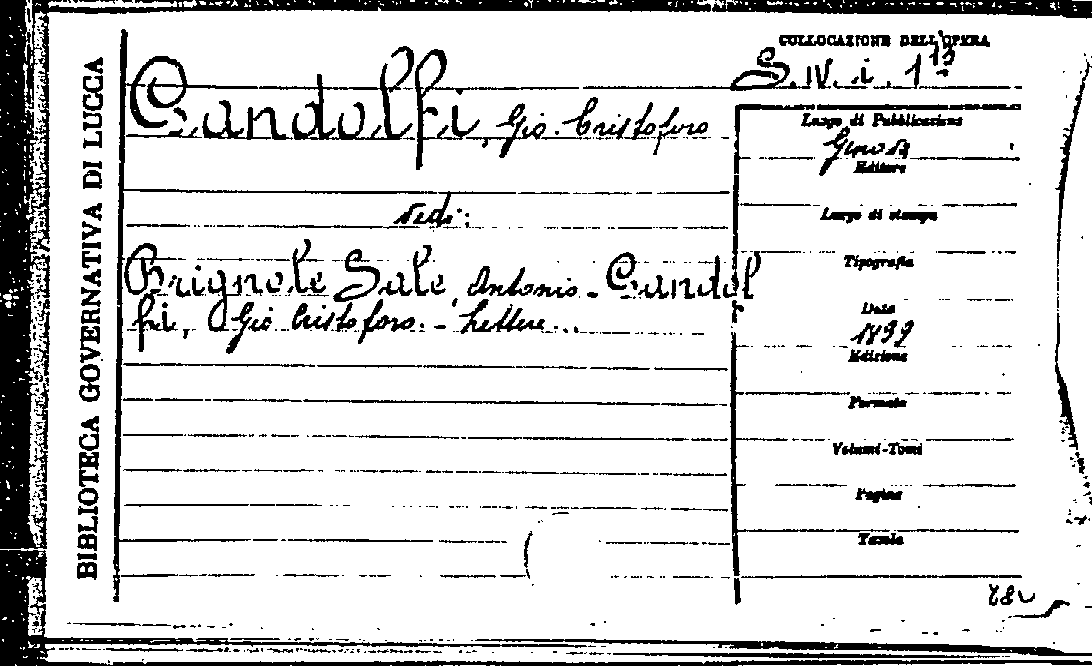 BIBLIOTECA GOVERNATIVA DI LUCCA
COLLOCAZIONE DELL'OPERA
S. IV. i. 1
Gandolfi, Gio. Cristoforo
vedi:
Brignole Sale, Antonio - Gandol
fi, Gio Cristoforo. - Lettere...
Luogo di Pubblicazione
Genova
Editore
Luogo di stampa
Tipografia
Data
1899
Edizione
Formato
Volumi-Tomi
Pagine
Tavole